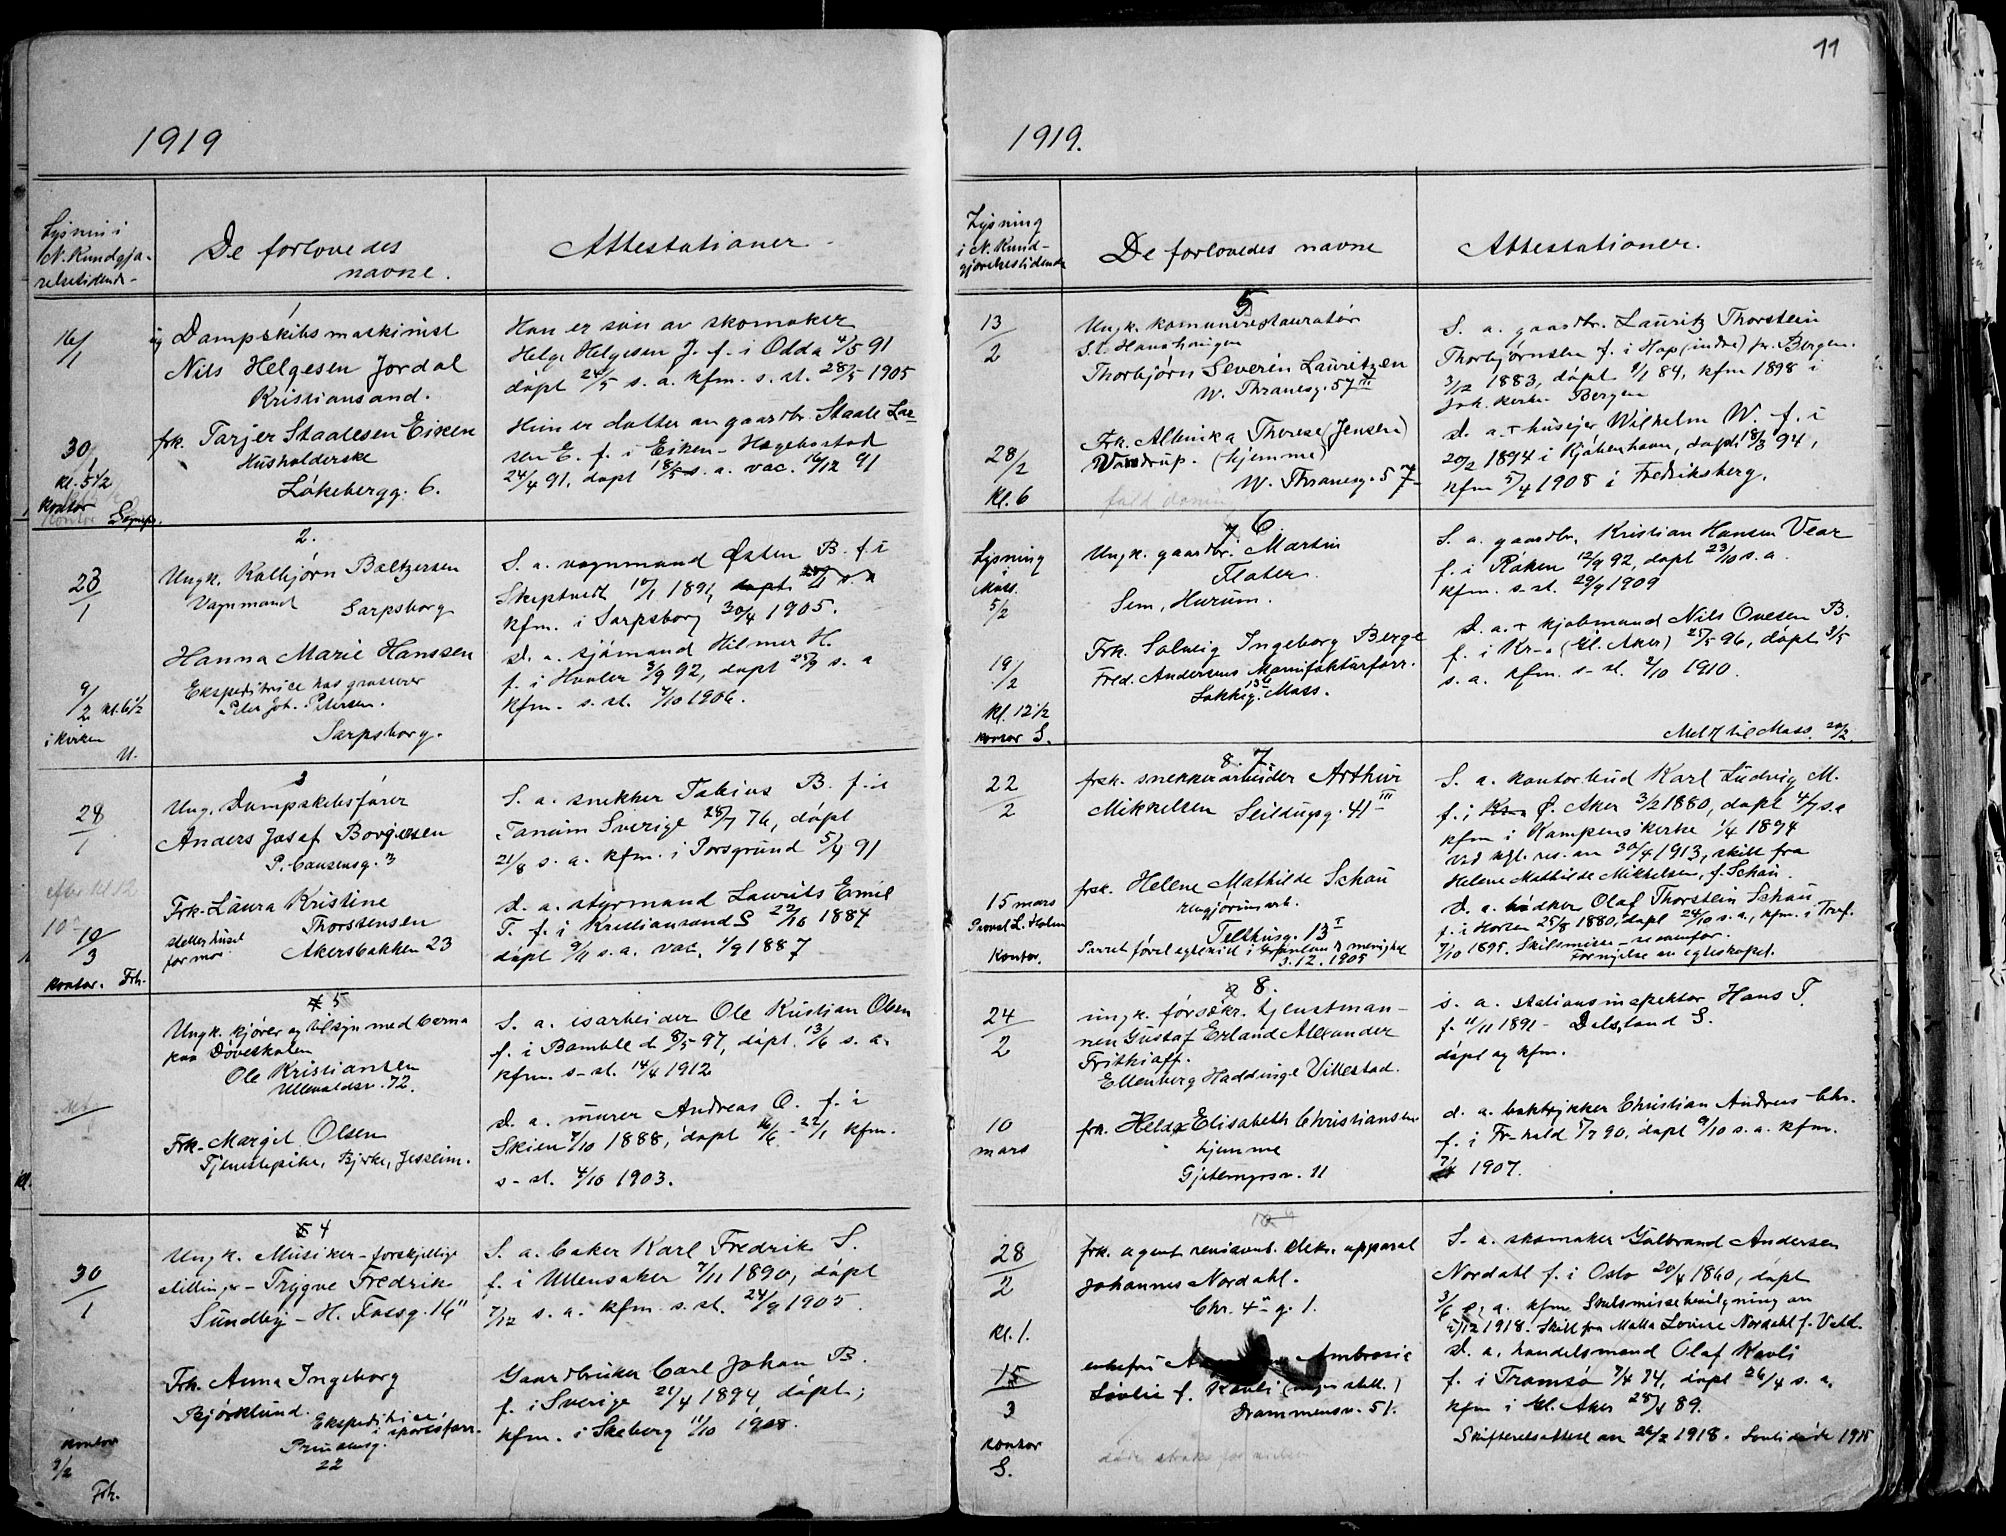 1919
Lysning i
N. Kundgjø-
relsestidende
De forlovedes
navne.
Attestationer
16/1
1
Ug Dampskibsmaskinist
Nils Helgesen Jordal
Kristiansand.
frk. Tarjer Staalesen Eiken
Husholderske
Løkebergg. 6.
30/1
kl. 5 1/2
kontor
Han er søn av skomaker
Helge Helgesen J. f. i Odda 4/5 91
døpt 24/5 s. a. kfm. s. st. 28/5 1905
Hun er datter av gaardbr. Staale Lar-
sen E. f. i Eiken - Hægebostad
24/4 91, døpt 18/5 s. a. vac. 16/12 91
2.
23/1
Ungk. Kolbjørn Baltzersen
Vognmand Sarpsborg
Hanna Marie Hanssen
Ekspeditrice hos grosserer
Peter Joh. Petersen.
Sarpsborg.
9/2 kl. 6 1/2
i kirken
U.
S. a. vognmand Østen B. f. i
Skiptvedt 10/1 1891, døpt
kfm. i Sarpsborg 30/4 1905.
D. a. sjømand Hilmer H.
f. i Hvaler 3/9 92, døpt 25/9 s. a
kfm. s. st. 7/10 1906.
3
28/1
Ung. Dampskibsfører
Anders Josef Borgesen
P. Clausensg. 3
Frk. Laura Kristine
Thorstensen
steller huset
for mor
Akersbakken 23
efter kl 12
10/3
kontor. Frh.
S. a. snekker Tobias B. f. i
Tanum Sverige 28/7 76, døpt
21/8 s. a. kfm. i Porsgrund 5/4 91
D. a. styrmand Laurits Emil
T. f. i Kristiansand S 22/10 1884
døpt 9/11 s. a. vac. 1/9 1887
4 5
Ungk. kjører og tilsyn med barna
paa Døveskolen
Ole Kristiansen
Ullevaldsv. 72.
Frk. Margit Olsen
Tjenestepike, Bjerke, Jessheim.
S. a. isarbeider Ole Kristian Olsen
f. i Bamble d 8/5 97, døpt 13/6 s. a.
kfm. s. st. 14/4 1912
D. a. murer Andreas O. f. i
Skien 9/10 1888, døpt 16/6 - 22/1 kfm.
s. st. 4/10 1903.
5 4
30/1
Ungk. Musiker - forskjellige
stillinger - Trygve Fredrik
Sundby - H. Fossg. 16"
Frk. Anna Ingeborg
Bjørklund. Ekspeditrice
i sportsforr.
22
kontor
9/2
Frh.
S. a. baker Karl Fredrik S.
f. i Ullensaker 7/11 1890, døpt
7/12 s. a. kfm. s. st. 24/9 1905.
Gaardbruker Carl Johan B.
f. i Sverige 21/4 1894 døpt;
kfm. i Skeberg 11/10 1908.
11
1919.
Lysning
i N. Kund-
gjørelsestidende
De forlovedes navne
Attestationer.
5
13/2
Ungk. komunerestauratør
Thorbjørn Severin Lauritzen
W. Thranesg. 57 III
Frk. Almika Therese (Jensen)
Vandrup. (hjemme)
W. Thranesg. 57
28/2
Kl. 6
S. a. gaardbr. Lauritz Thorstein
Thorbjørnsen f. i Hop (indre) pr. Bergen.
3/12 1883, døpt 9/1 84, kfm 1898 i
Joh. kirke Bergen
D. a. + husejer Wilhelm W. f. i
20/2 1894 i Kjøbenhavn, døpt 18/3 94,
kfm 5/4 1908 i Fredriksberg.
7 6
Lysning
Moss
5/2
Ungk. gaardbr. Martin
Flater.
Sem, Hurum.
Frk. Solveig Ingeborg Berge
Fred. Andersens Manifakturforr.
Moss.
19/2
Kl. 12 1/2
kontor S.
S. a. gaardbr. Kristian Hansen Vear
f. i Røken 12/9 92, døpt 23/10 s. a.
kfm. s. st. 29/9 1909
D. a. + kjøbmand Nils Ovesen B.
f. i Kr-a (Gl. Aker) 25/5 96, døpt 3/5
s. a. kfm. s. st. 2/10 1910.
Meldt til Moss. 20/2
8. 7.
22/2
frsk. snekkerarbeider Arthur
Mikkelsen Seildugsg. 41 III
frsk. Helene Mathilde Schau
rengjøringsarb.
Telthusg. 13 I
Parretførsl egteviet i menighet
3. 12. 1905
15 mars
Provst L. Holm
Kontor.
S. a. kontorbud Karl Ludvig M.
f. i Ø. Aker 3/2 1880, døpt 4/7 s. a
kfm i Kampens kirke 1/4 1894
ved kgl. res. av 30/4 1913, skilt fra
Helene Mathilde Mikkelsen, f. Schau.
D. a. bødker Olaf Thorstein Schau
f. i Horten 25/8 1880, døpt 24/10 s. a., kfm. i Tref.
7/10 1895. Skilsmisse - se ovenfor.
Fornyelse av egteskapet.
9 8.
24/2
ungk. försäkr. tjenstman-
nen Gustaf Erland Alexander
Frithioff.
Ellenberg Haddinge Villestad.
frk. Helda Elisabeth Christiansen
hjemme
Gjetemyrsv. 11
10
mars
s. a. stationsinspektor Hans F.
f. 11/11 1891 - Dalsland S.
døpt og kfm.
d. a. boktrykker Christian Andreas Chr.
f. i Fr-hald 5/7 90, døpt 9/10 s. a. kfm.
1907.
28/2
frk. agent elektr. apparat
Johannes Nordahl.
Chr. 4 g. 1.
Kl. 1.
15/3
enkefru Ambrosia
Løvlie f. Kavli
Drammensv. 51.
kontor
S.
S. a. skomaker Gulbrand Andersen
Nordahl f. i Oslo 20/4 1860, døpt
3/6 s. a. kfm. Skilsmissebevilgning av
5/12 1918. Skilt fra Malla Lovise Nordahl f. Vold.
D. a. handelsmand Olaf Kavli
f. i Tromsø 7/4 74, døpt 26/4 s. a.
kfm i Gl. Aker 28/4 89.
Skifteretsattest av 26/2 1918.